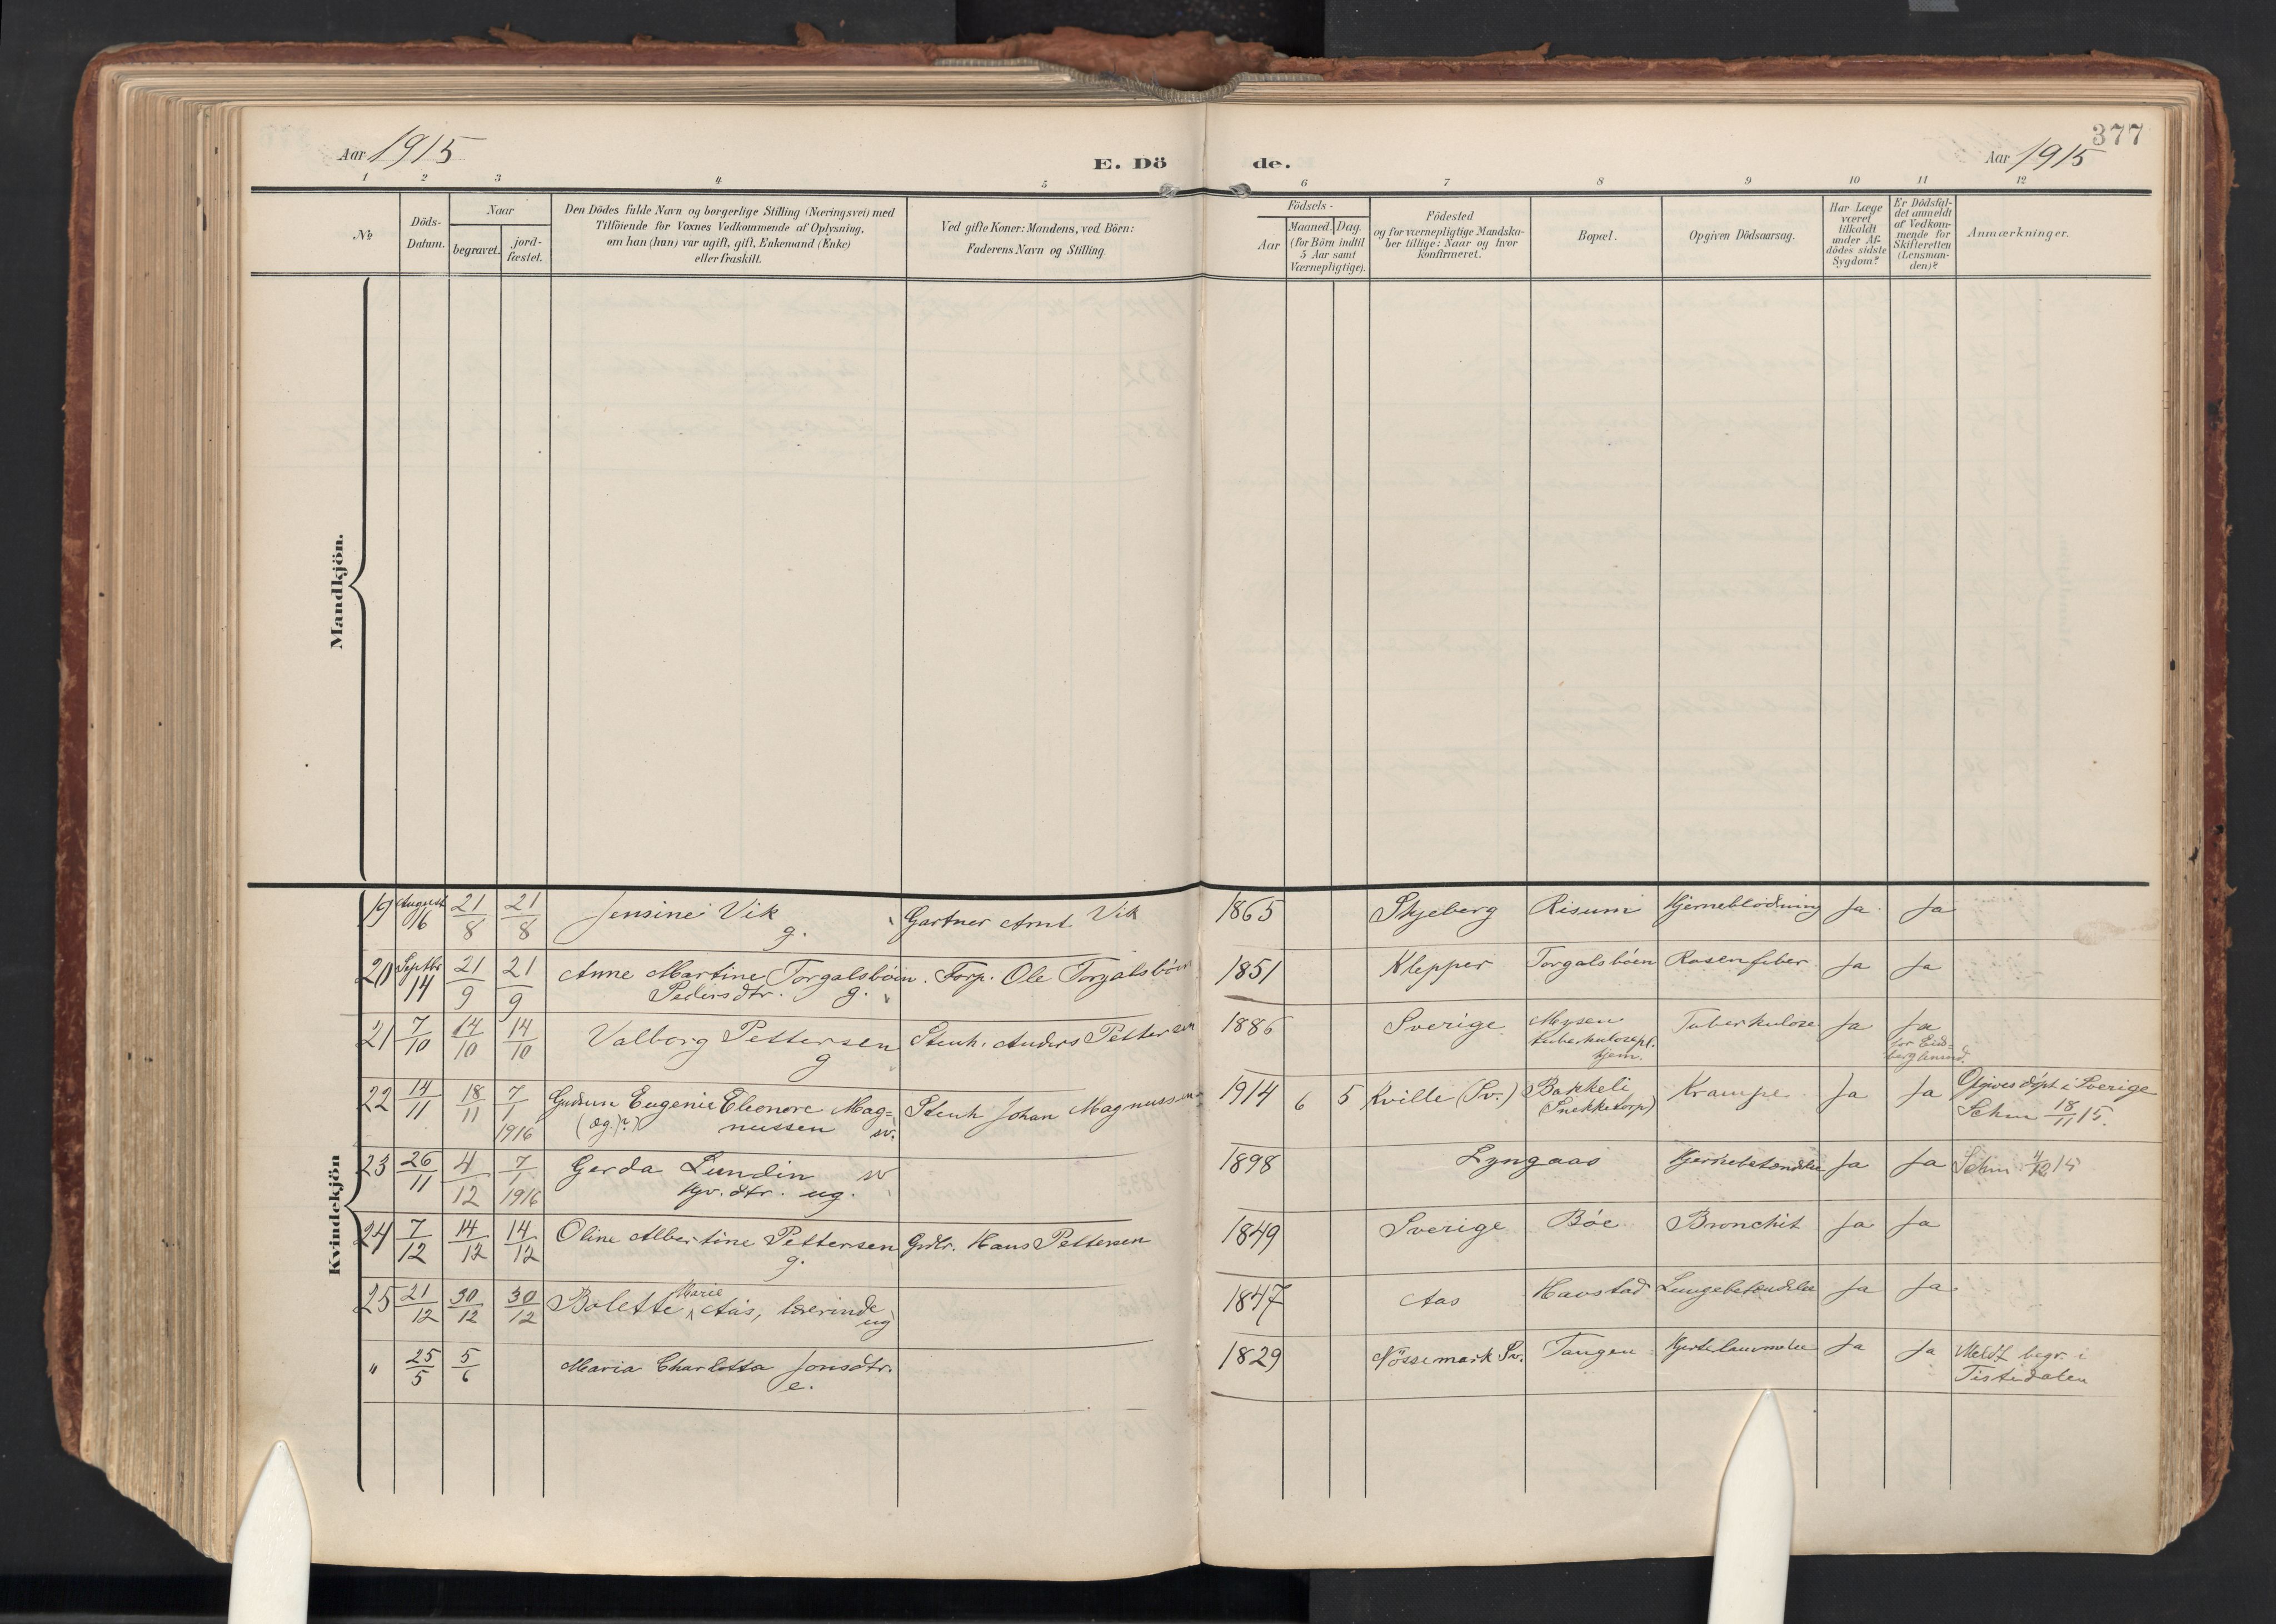 377
Aar 1915
E. Dö de.
Aar 1915
1 2 3 4 5 6 7 8 9 10 11 12
No
Döds-
Datum.
Naar
begravet.
jord-
fæstet.
Den Dödes fulde Navn og borgerlige Stilling (Næringsvei) med
Tilföiende for Voxnes Vedkommende af Oplysning,
om han (hun) var ugift, gift, Enkemand (Enke)
eller fraskilt.
Ved gifte Koner: Mandens, ved Börn:
Faderens Navn og Stilling.
Födsels-
Aar
Maaned. Dag.
(for Börn indtil
5 Aar samt
Værnepligtige).
Födested
og for værnepligtige Mandska-
ber tillige: Naar og hvor
konfirmeret.
Bopæl.
Opgiven Dödsaarsag.
Har Læge
været
tilkaldt
under Af-
dödes sidste
Sygdom?
Er Dödsfal-
det anmeldt
af Vedkom-
mende for
Skifteretten
(Lensman-
den)?
Anmærkninger.
Mandkjön.
Kvindekjön
19 August 16 21/8 21/8 Jensine Vik g. Gartner Arnt Vik 1865 Skjeberg Risum Hjerneblödning Ja Ja
20 Septbr 14 21/9 21/9 Anne Martine Torgalsböen. Torp. Ole Torgalsböen 1851 Klepper Torgalsböen Rosenfeber Ja Ja
Pedersdtr. g.
21 7/10 14/10 14/10 Valborg Pettersen Stenh. Anders Pettersen 1886 Sverige Mysen Tuberkulose Ja Ja
g tuberkulosepl. hjem. for Eid=
berg lensmd.
22 14/11 18/11 7/1 1916 Gudrun Eugenie Eleonore Mag= Stenh Johan Magnussen 1914 6 5 Kville (Sv.) Bakkeli Krampe Ja Ja Opgives döpt i Sverige
(æg.?) nussen sv. (Snekketorp) 18/11 15.
23 26/11 4/12 7/1 1916 Gerda Lundin sv 1898 Lyngaas Hjernebetændelse Ja Ja 4/12 15
dtr. ug.
24 7/12 14/12 14/12 Oline Albertine Pettersen Grdbr. Hans Pettersen 1849 Sverige Böe Bronchit Ja Ja
g.
25 21/12 30/12 30/12 Bolette Marie Aas, lærerinde 1847 Aas Havstad Lungebetændelse Ja Ja
ug
" 25/5 5/6 Maria Charlotta Jonsdtr. 1829 Nössemark Sv. Tangen Hjertelammelse Ja Ja Meldt begr. i
e. Tistedalen